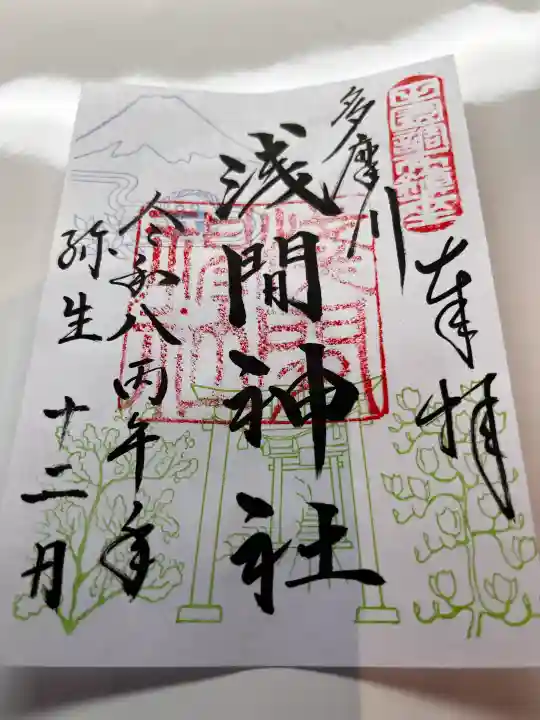 奉拝
多摩川
浅間神社
令和八丙午年
弥生 十二日